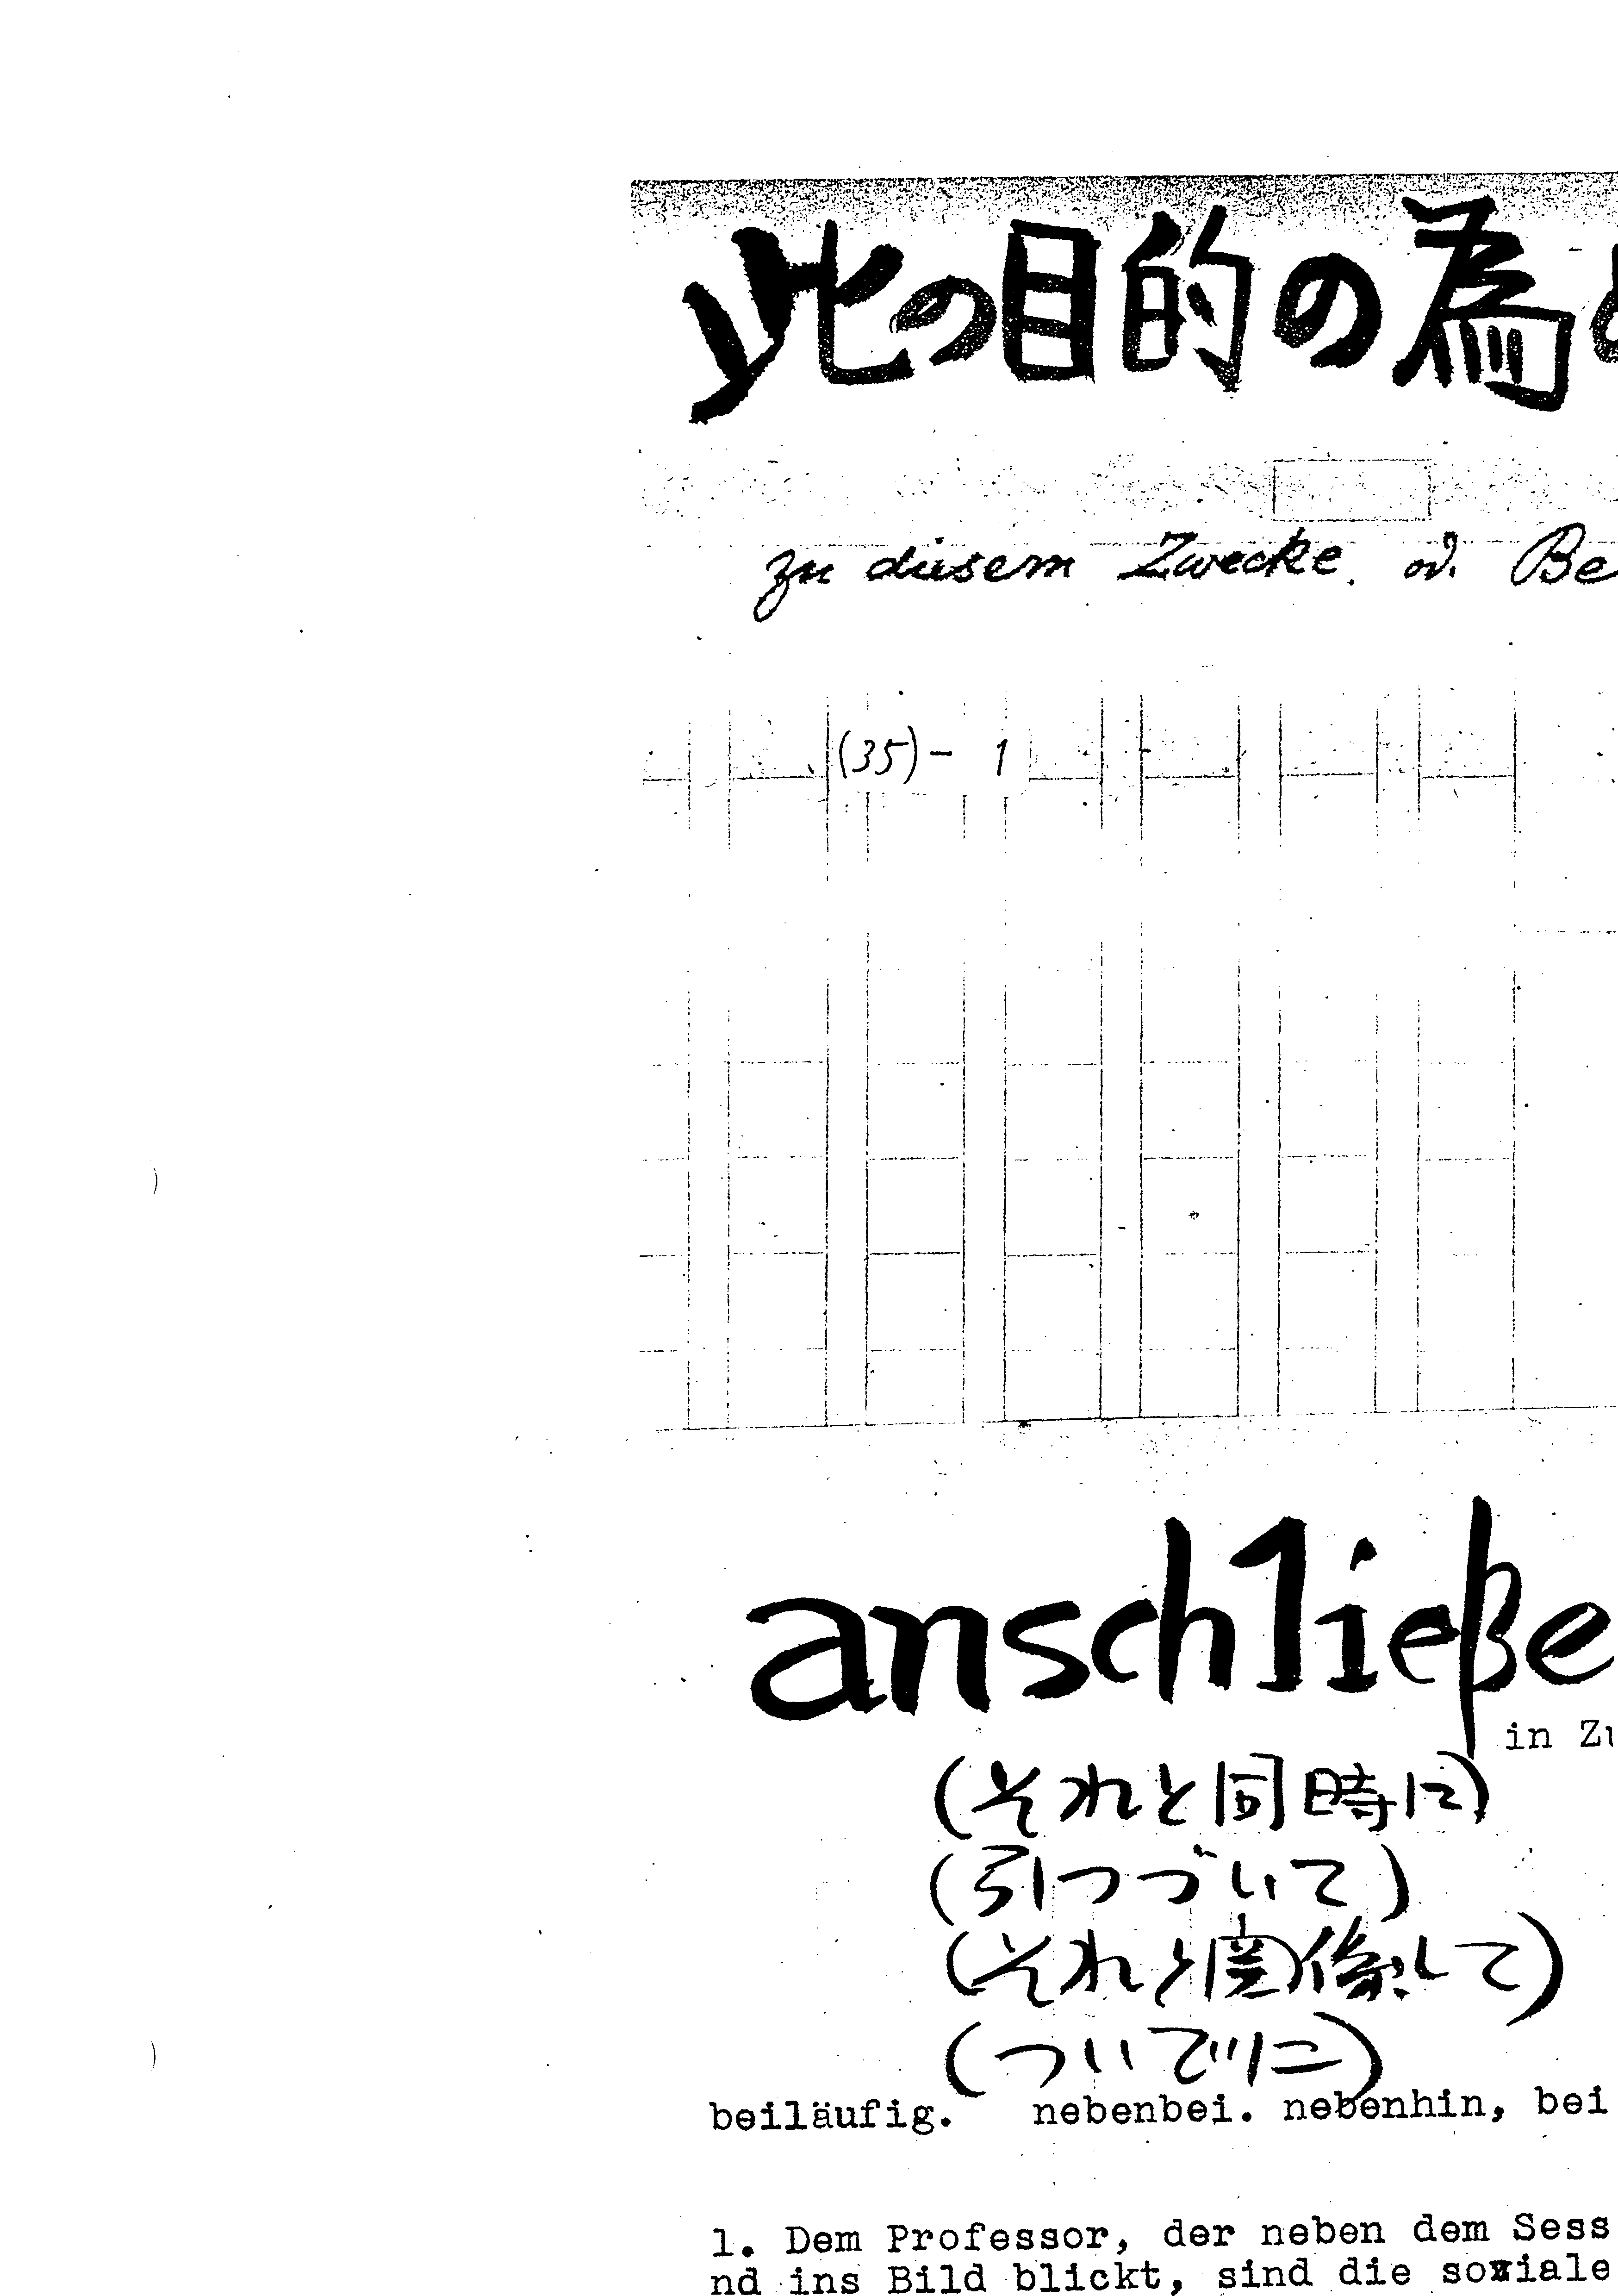 此の目的の為
zu diesem Zwecke. od. Be
(35)- 1
anschließe
in Zu
(それと同時に)
(引つづいて)
(それと関係して)
(ついでに)
beiläufig. nebenbei. nebenhin, bei
1. Dem Professor, der neben dem Sess
nd ins Bild blickt, sind die soziale